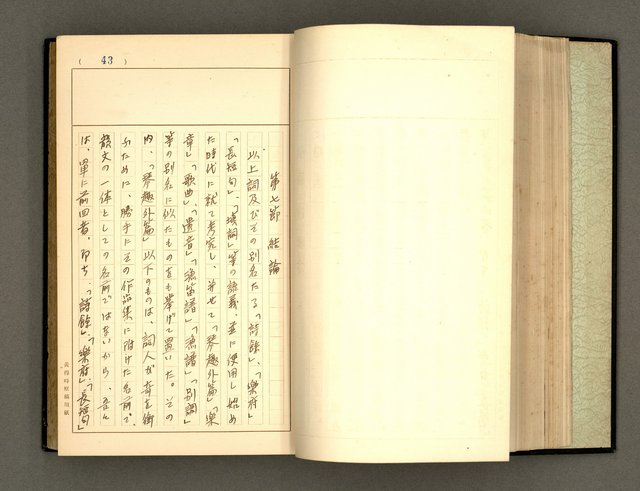 ( 43 )
第七節 結論
以上詞及びその別名たる「詩餘」、「樂府」
「長短句」、「填詞」等の語義、並に使用し始め
た時代に就て考究し、并せて「琴趣外篇」「樂
章」「歌曲」、「遺音」「漁笛譜」「漁譜」「別調」
等の別名に似たものをも擧げて置いた。その
内、「琴趣外篇」以下のものは、詞人が奇を衒
ふために、勝手にその作品集に附けた名前で、
散文の一体としての名前ではないから、吾人
は、單に前四者、即ち、「詩餘」、「樂府」、「長短句」
黃得時原稿用紙